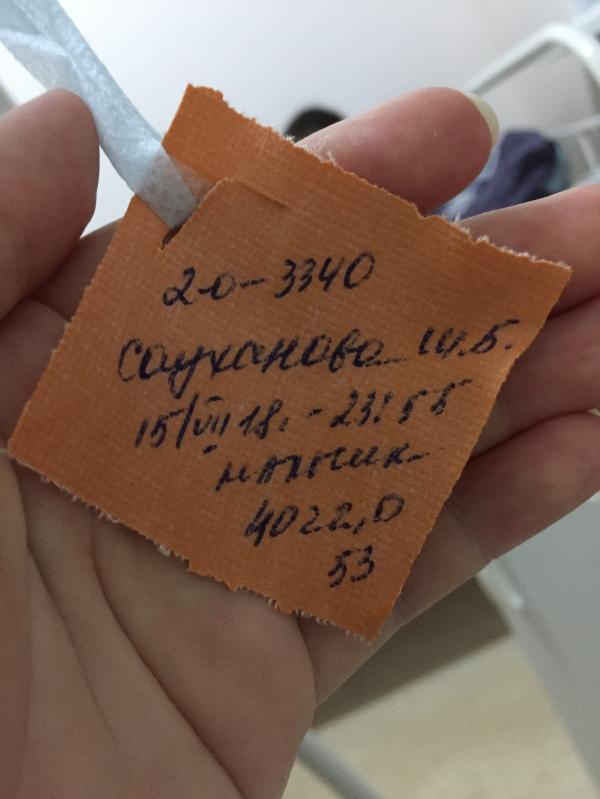 2-0-3340
Сауханова Ш.Б.
15/VII 18. - 23:55
мальчик
4022,0
53